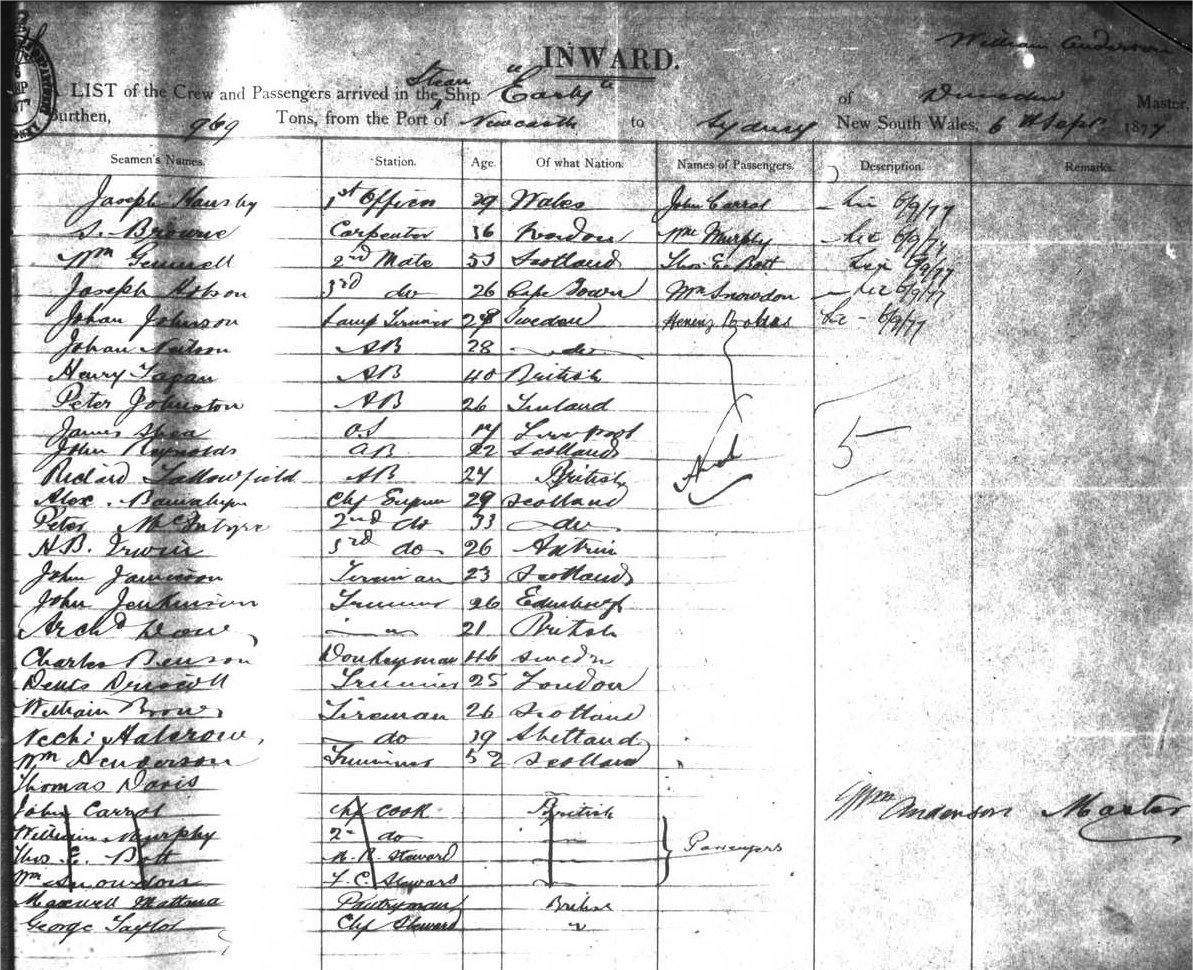 William Anderson
INWARD.
A LIST of the Crew and Passengers arrived in the Steam Ship "Easby" of Dunedin Master,
Burthen, 969 Tons, from the Port of Newcastle to Sydney New South Wales, 6th Sept 1877
Seamen's Names. Station. Age. Of what Nation. Names of Passengers. Description. Remarks.
Joseph 1st Officer 29 Wales John Carrol 6/9/77
S. Browne Carpenter 36 London Wm Murphy 6/9/77
Wm Gemmell 2nd Mate 53 Scotland Thos E. Bott 6/9/77
Joseph Hobson 3rd do 26 Cape Town Wm Snowdon 6/9/77
Johan Johnson Lamp Trimmer 28 Sweden 6/9/77
Johan Neilson AB 28 do
Henry AB 40 British
Peter Johnston AB 26 Finland
James Shea OS 17 Liverpool
John Reynolds AB 22 Scotland 5
Richard Tallowfield AB 24 British
Alex. Chf Engineer 29 Scotland
Peter McIntyre 2nd do 33 do
H.B. Irwin 3rd do 26 Antrim
John Jamieson Fireman 23 Scotland
John Jenkinson Trimmer 26 Edinburgh
Archd Dow 21 British
Charles Benson Donkeyman 46 Sweden
Denis Driscoll Trimmer 25 London
William Brown Fireman 26 Scotland
Halcrow do 19 Shetland
Wm Henderson Trimmer 52 Scotland
Thomas Davis
John Carrol Chf Cook British Wm Anderson Master
William Murphy 2nd do
Thos E. Bott Steward Passengers
Wm Snowdon F.C. Steward
Maxwell Pantryman British
George Taylor Chf Steward